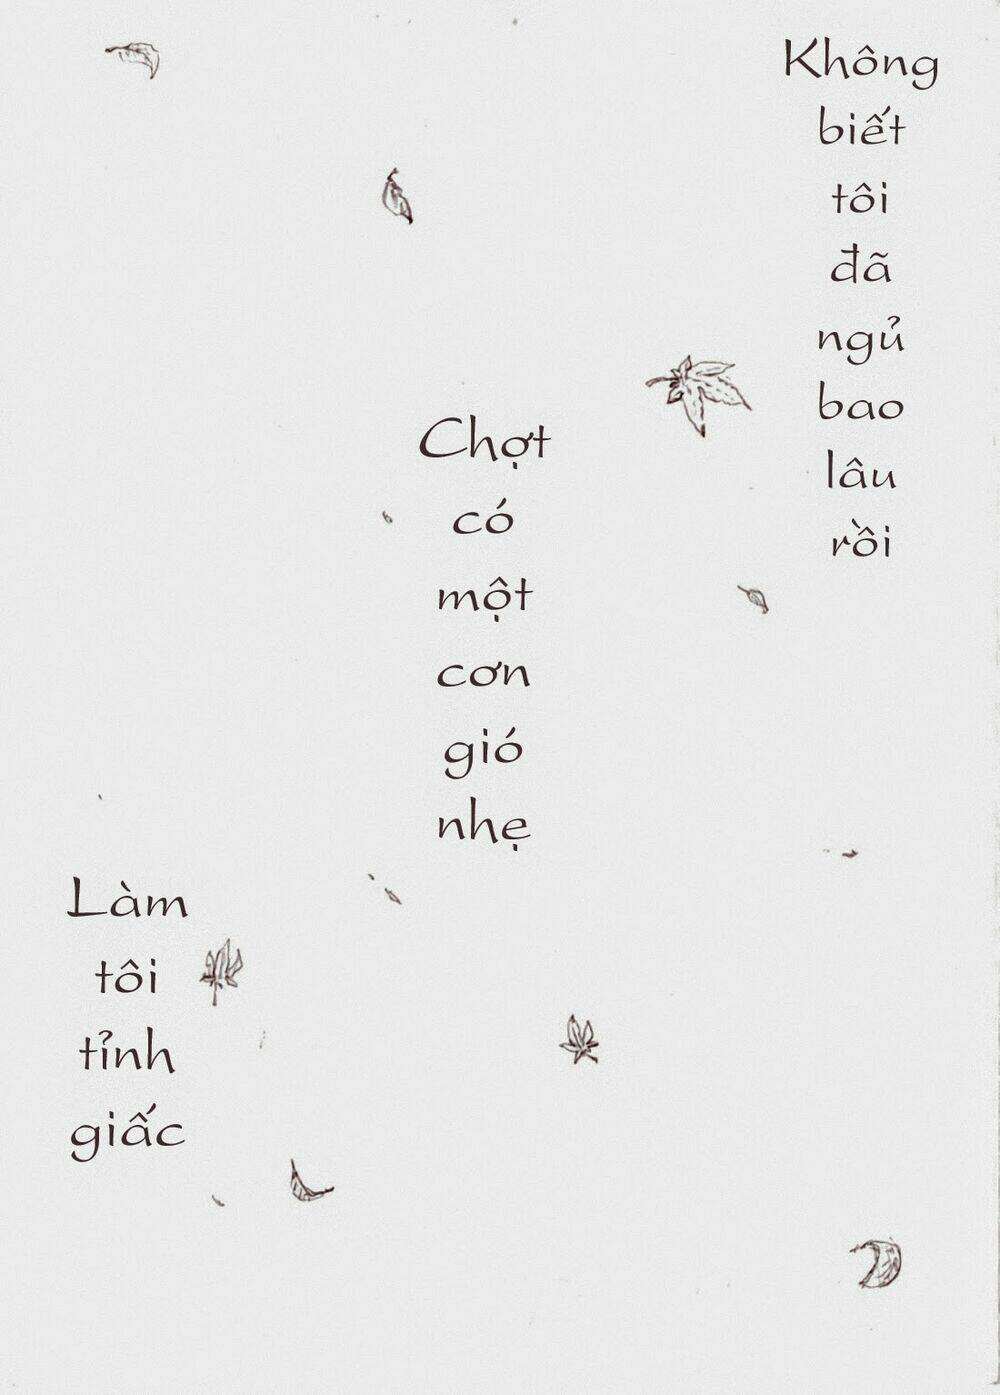 Không
biết
tôi
đã
ngủ
bao
lâu
rồi
Chợt
có
một
cơn
gió
nhẹ
Làm
tôi
tỉnh
giấc